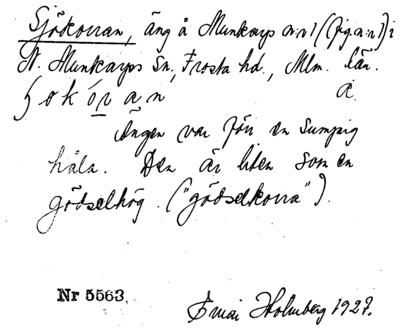 Sjökorran, äng å Munkarps nr 1 (fig. a:1) i
N. Munkarps Sn, Frosta hd., Mlm. län.
ʃokóran a.
Ängen var förr en sumpig
håla. Den är liten som en
gödselhög. ("gödselkorra").
Nr 5563. Smai Holmberg 1927.